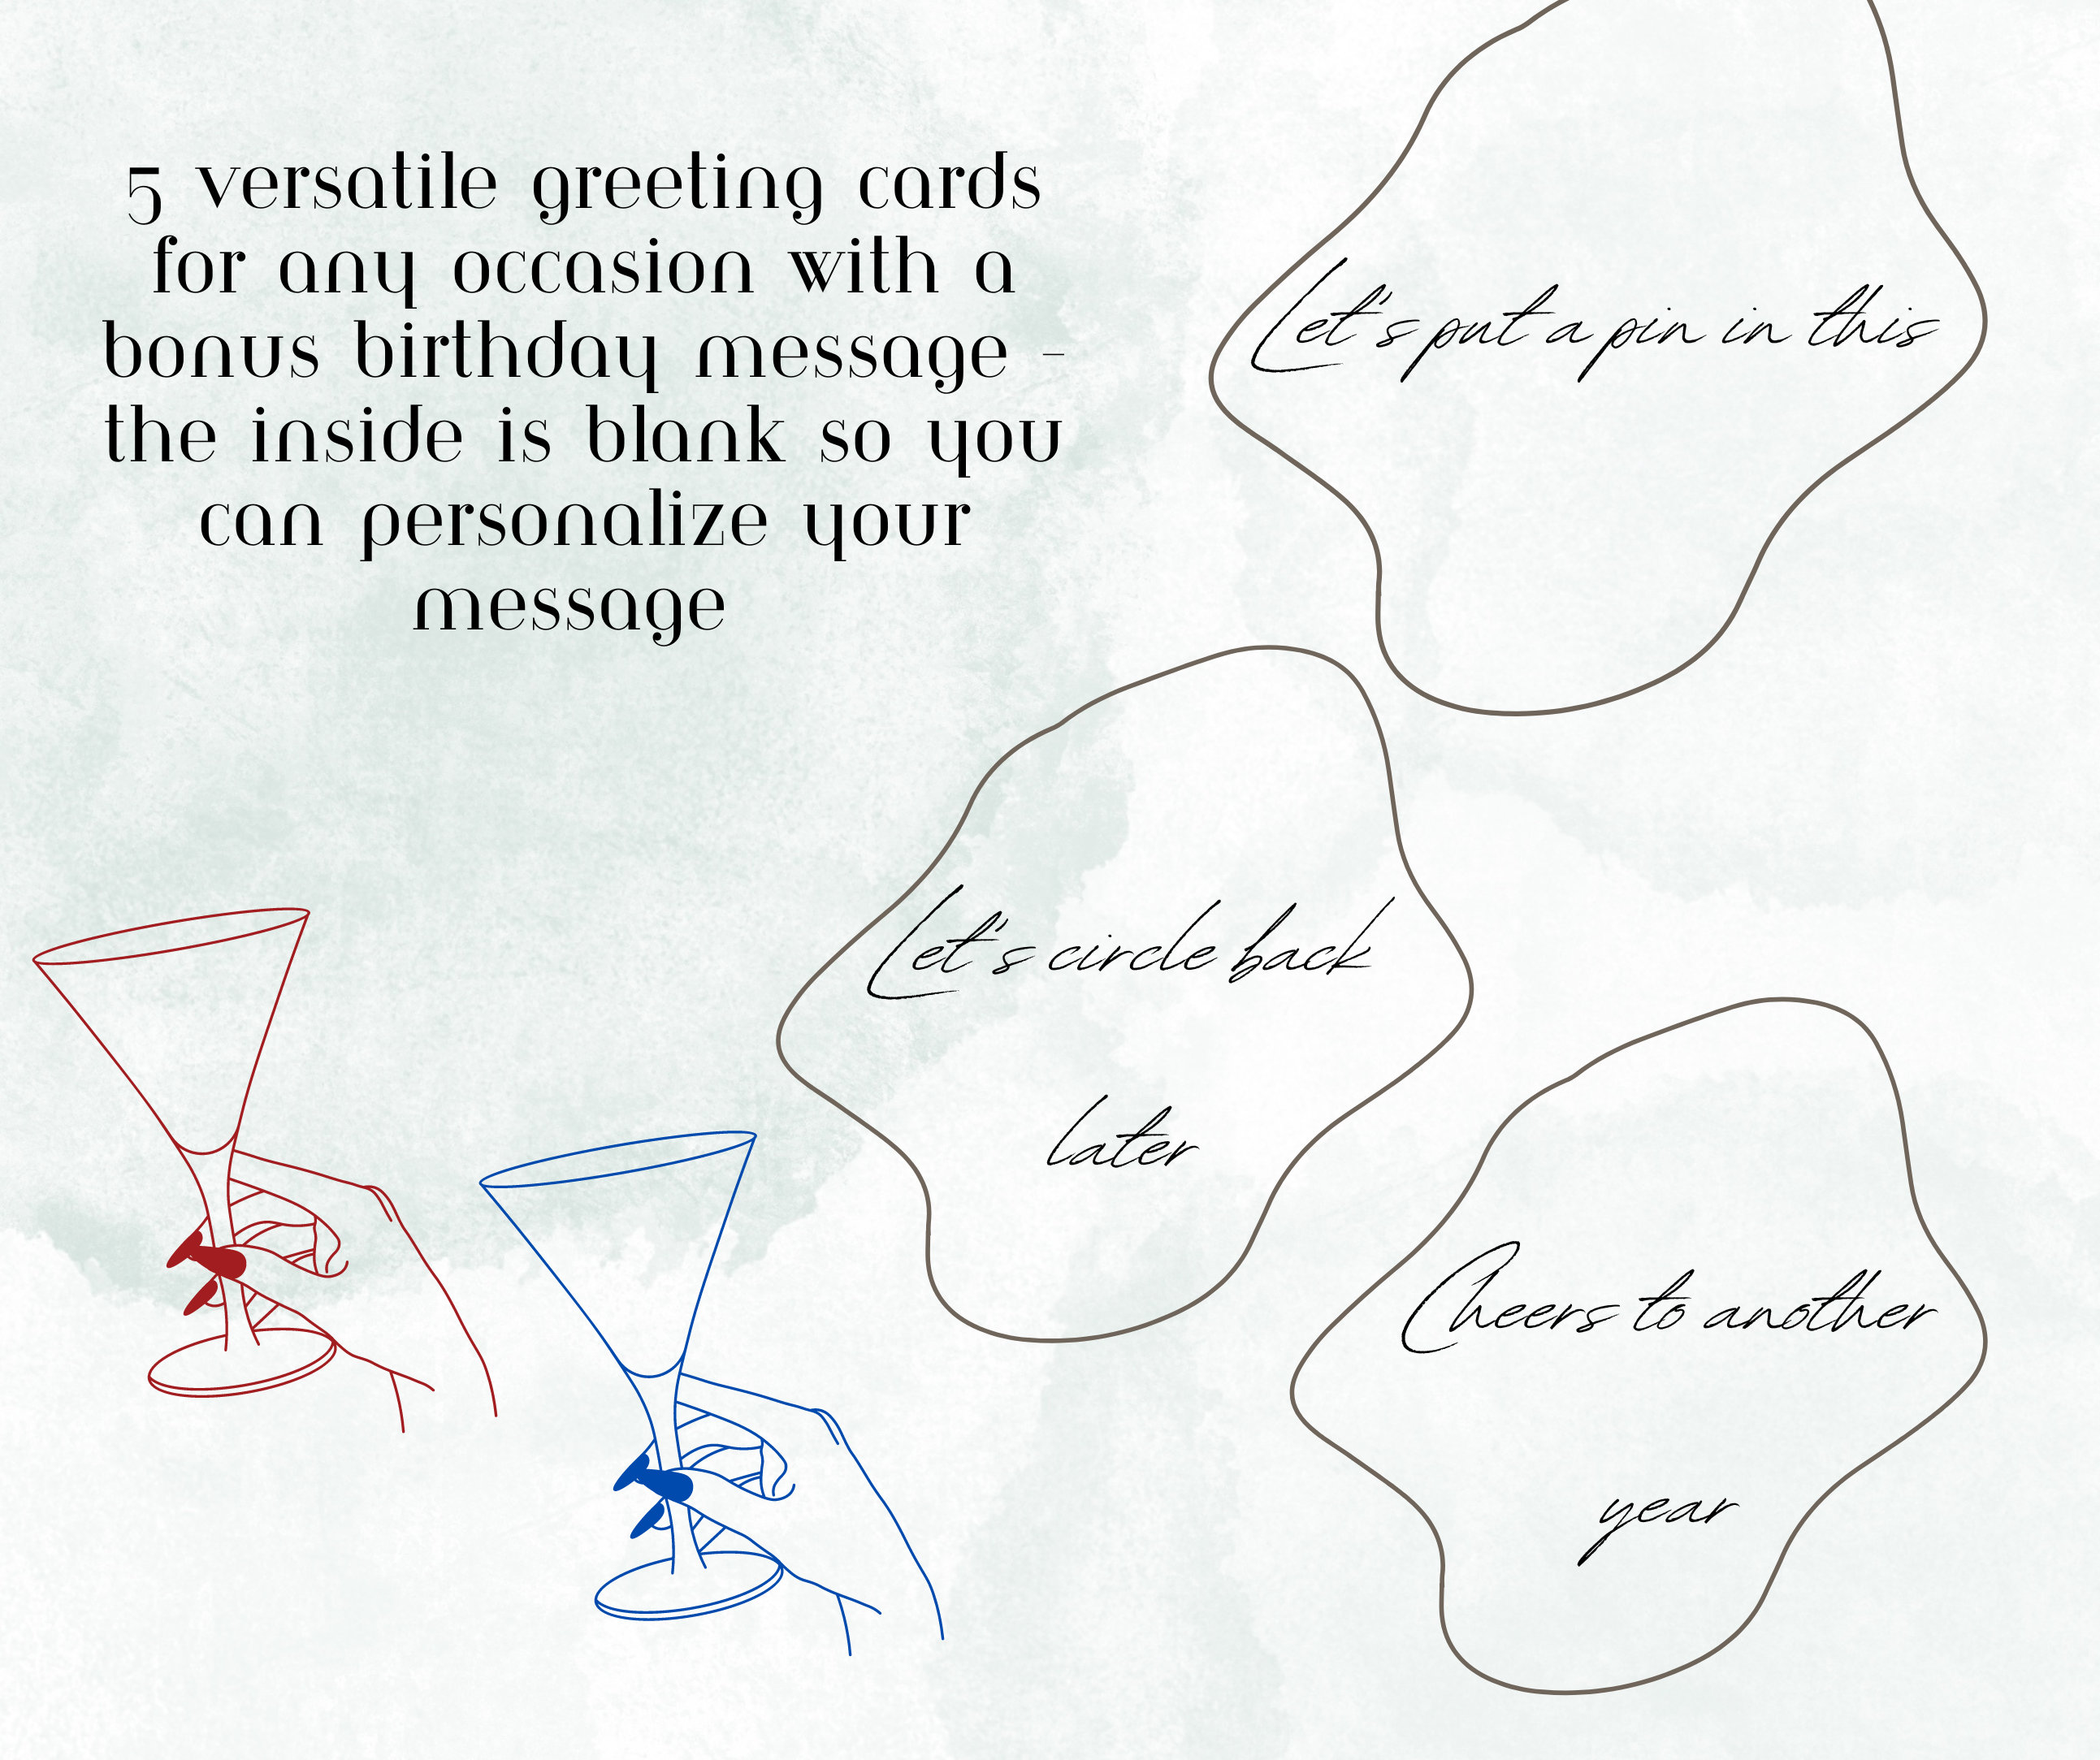 5 versatile greeting cards
for any occasion with a
bonus birthday message -
the inside is blank so you
can personalize your
message
Let's put a pin in this
Let's circle back
later
Cheers to another
year